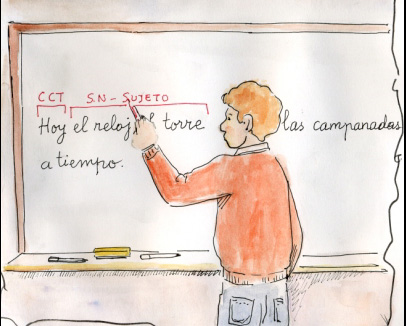 CCT S.N - SUJETO
Hoy el reloj torre las campanadas
a tiempo.